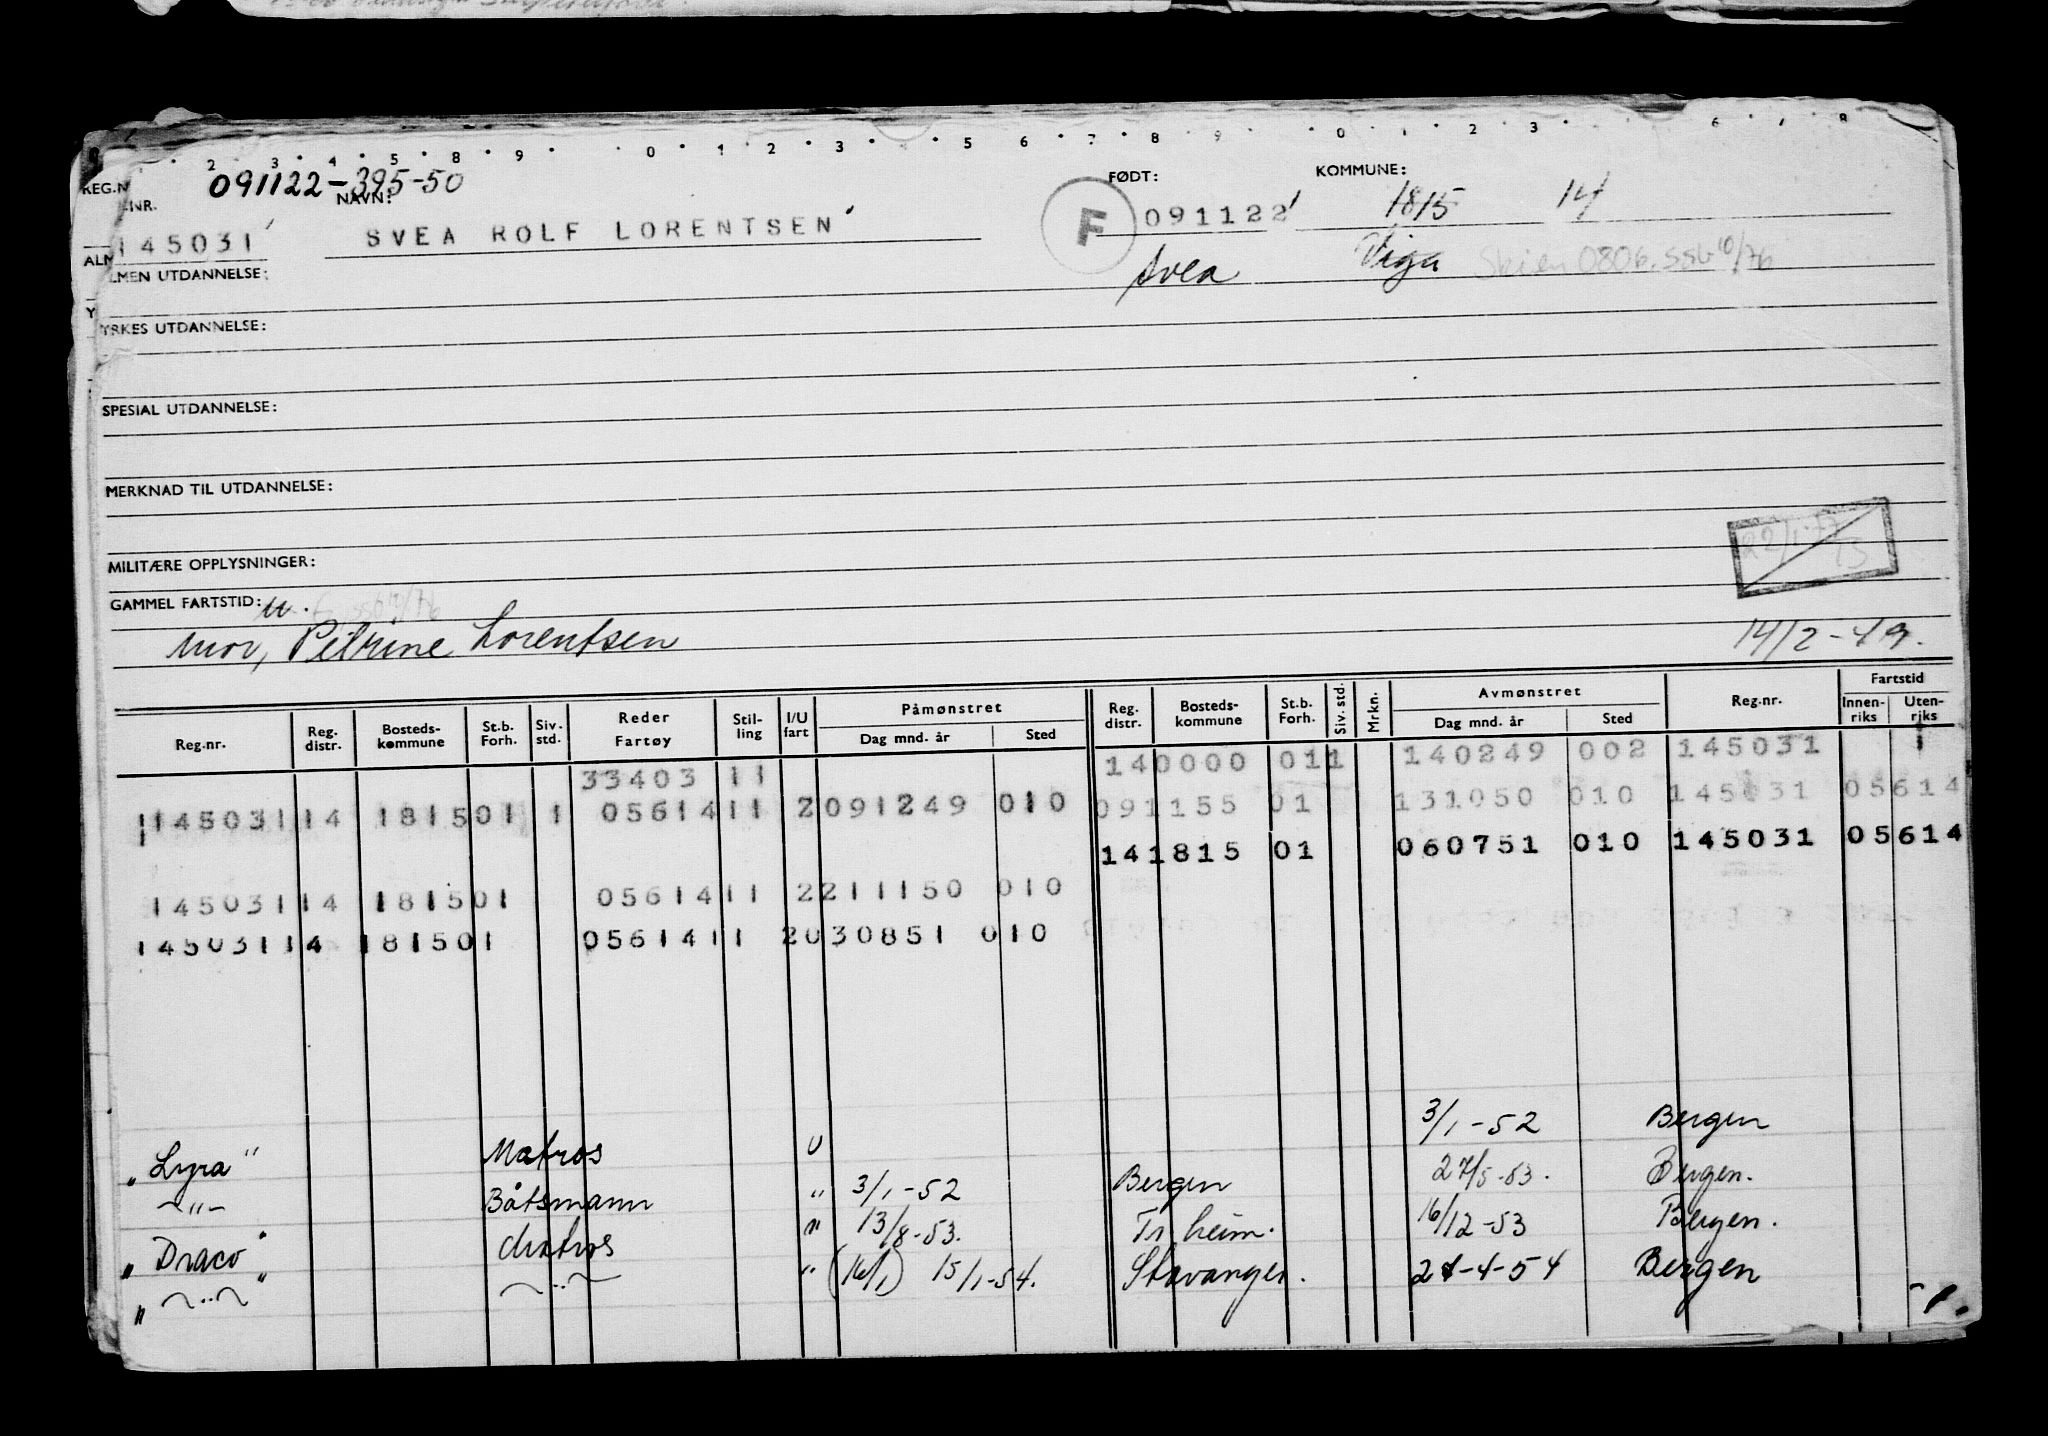 2 3 4 5 8 9 0 1 2 3 5 6 7 8 9 0 1 2 3 6 7 8
REG.N 091122-395-50 FØDT: KOMMUNE:
NR. NAVN: F 091122 1815 14
145031 SVEA ROLF LORENTSEN
ALMEN UTDANNELSE: Svea Viga Skien 0806. ssb 10/76
YRKES UTDANNELSE:
SPESIAL UTDANNELSE:
MERKNAD TIL UTDANNELSE:
22/1-77
MILITÆRE OPPLYSNINGER:
GAMMEL FARTSTID: u. ssb 10/76
Mor, Petrine Lorentsen 14/2-49.
Reg.nr. Reg. distr. Bosteds-kommune St.b. Forh. Siv. std. Reder Fartøy Stil-ling I/U fart Påmønstret Dag mnd. år Sted Reg. distr. Bosteds-kommune St.b. Forh. Siv. std. Mrkn. Avmønstret Dag mnd. år Sted Reg.nr. Fartstid Innen-riks Uten-riks
33403 11 140000 011 140249 002 145031 1
145031 14 181501 1 05614 11 2 091249 010 091155 01 131050 010 145031 05614
141815 01 060751 010 145031 05614
145031 14 181501 05614 11 2 211150 010
145031 14 181501 05614 11 2 030851 010
"Lyra" Matros U 3/1-52 Bergen
-"- Båtsmann " 3/1-52 Bergen 27/5-53. Bergen.
"Draco" Matros " 13/8-53. Tr.heim. 16/12-53 Bergen.
" -"- " -"- " (16/1) 15/1-54. Stavanger. 24-4-54 Bergen